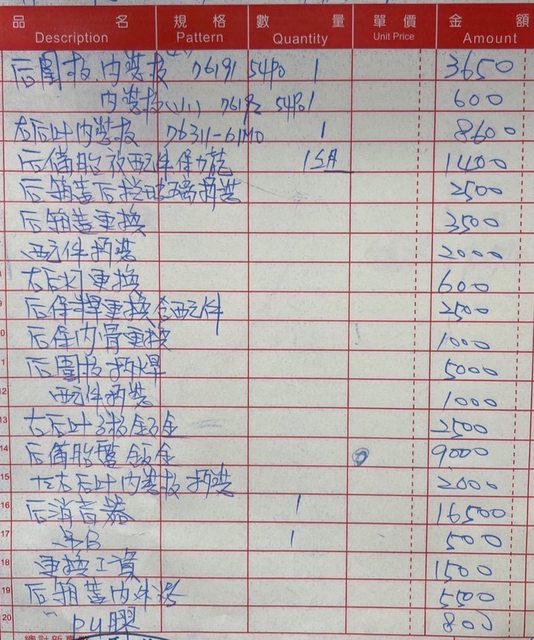 品 名 規 格 數 量 單 價 金 額
Description Pattern Quantity Unit Price Amount
后圍板 內裝板 76191 54P0 1 3650
內裝板 76192 54P0 1 600
右后叶內裝板 76311-61M0 1 8600
后備胎 配件 保力龍 1 1400
后箱蓋后档玻璃拆裝 2500
后箱蓋更換 3500
配件拆裝 2000
右后灯更換 600
9 后保桿更換 含配件 2500
0 后保內骨更換 1000
1 后圍板拆焊 5000
12 配件拆裝 1000
13 右后叶 鈑金 2500
14 后備胎 鈑金 9000
15 左右后叶內裝板 拆裝 2000
16 后消音器 1 16500
17 1 500
18 更換工資 1500
19 后箱蓋內 5500
20 " PU膠 800